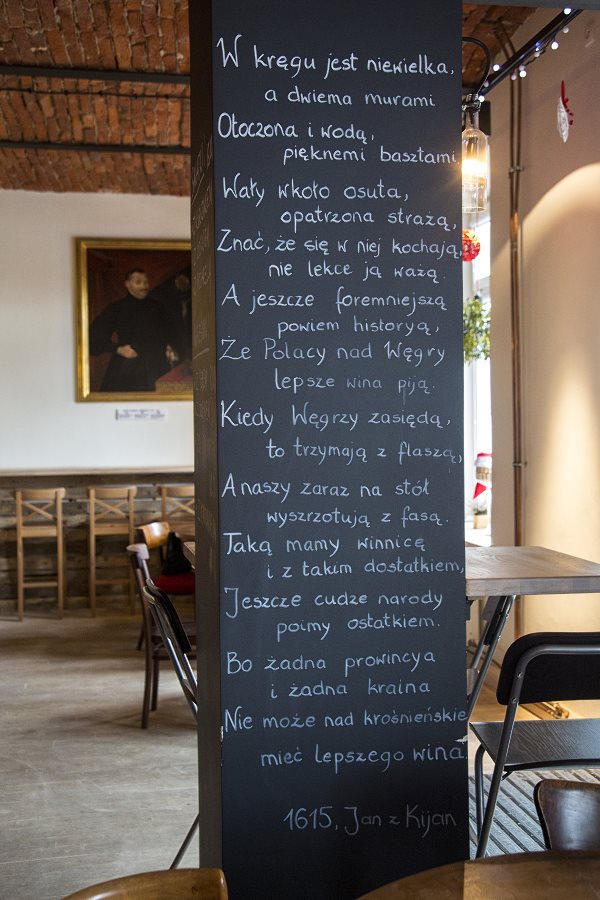 W kręgu jest niewielka,
a dwiema murami
Otoczona i wodą,
pięknemi basztami,
Wały wkoło osuta,
opatrzona strażą,
Znać, że się w niej kochają,
nie lekce ją ważą.
A jeszcze foremniejszą
powiem historyą,
Że Polacy nad Węgry
lepsze wina piją.
Kiedy Węgrzy zasiędą,
to trzymają z flaszą,
A naszy zaraz na stół
wyszrzotują z fasą.
Taką mamy winnicę
i z takim dostatkiem,
Jeszcze cudze narody
poimy ostatkiem.
Bo żadna prowincya
i żadna kraina
Nie może nad krośnieńskie
mieć lepszego wina.
1615, Jan z Kijan